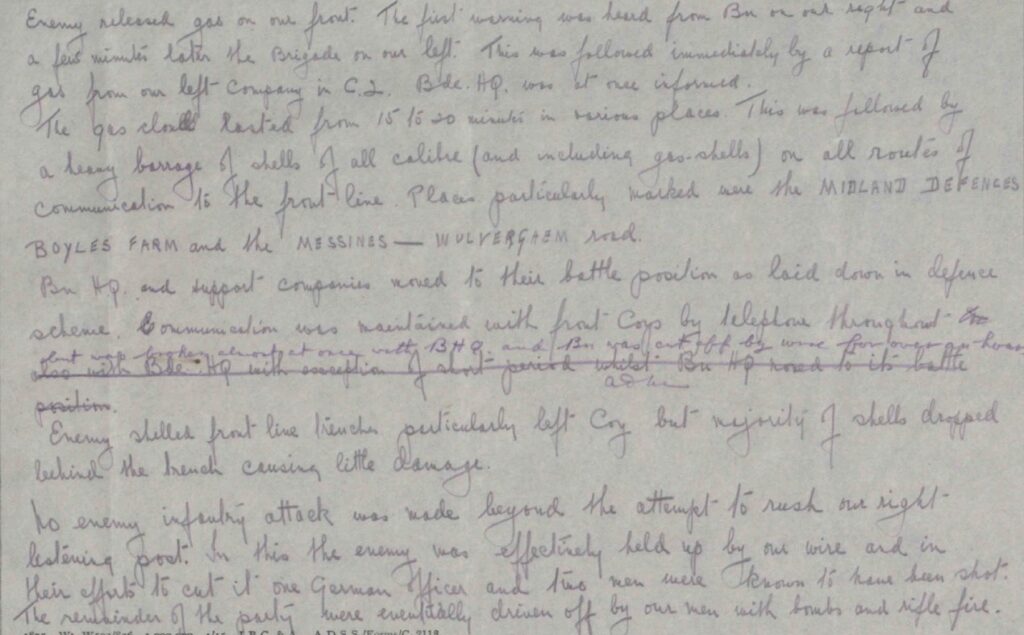 Enemy released gas on our front. The first warning was heard from Bn on our right and
a few minutes later the Brigade on our left. This was followed immediately by a report of
gas from our left Company in C.2. Bde. HQ. was at once informed.
The gas cloud lasted from 15 to 20 minutes in various places. This was followed by
a heavy barrage of shells of all calibre (and including gas-shells) on all routes of
communication to the front line. Places particularly marked were the MIDLAND DEFENCES
BOYLES FARM and the MESSINES — WULVERGHEM road.
Bn HQ. and support companies moved to their battle position as laid down in defence
scheme. Communication was maintained with front Coys by telephone throughout
but was broken almost at once with BHQ and Bn was cut off by wire for over an hour
also with Bde. HQ with exception of short period whilst Bn HQ moved to its battle
position.
Enemy shelled front line trenches particularly left Coy but majority of shells dropped
behind the trench causing little damage.
No enemy infantry attack was made beyond the attempt to rush our right
listening post. In this the enemy was effectively held up by our wire and in
their efforts to cut it one German Officer and two men were known to have been shot.
The remainder of the party were eventually driven off by our men with bombs and rifle fire.